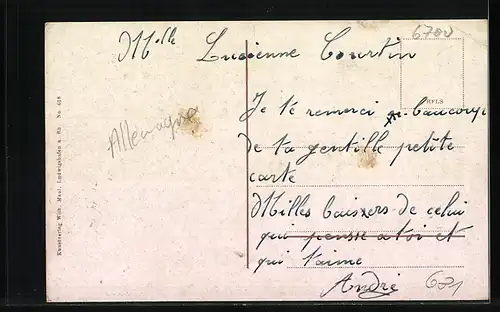 Mlle Lucienne Courtin
6700
Allemagne
Je te remerci beaucoup
de ta gentille petite
carte
Milles baisers de celui
qui pensse a toi et
qui t'aime
André
681
Kunstverlag Wilh. Meul, Ludwigshafen a. Rh. No. 618